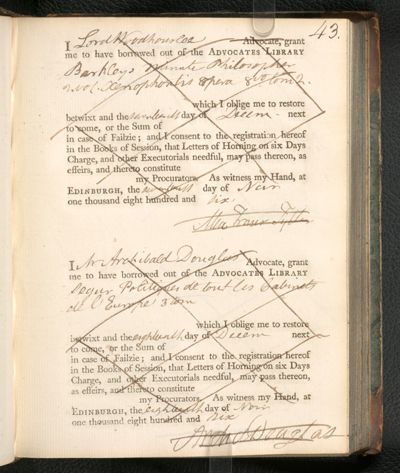 43.
I Lord Woodhouselee Advocate, grant
me to have borrowed out of the ADVOCATES LIBRARY
Berkleys Minute Philosopher
2 vol. Xenophontis opera 8vo tom 2.
which I oblige me to restore
betwixt and the seventeenth day of Decem. next
to come, or the Sum of
in case of Failzie; and I consent to the registration hereof
in the Books of Session, that Letters of Horning on six Days
Charge, and other Executorials needful, may pass thereon, as
effeirs, and thereto constitute
my Procurators. As witness my Hand, at
EDINBURGH, the seventeenth day of Novr
one thousand eight hundred and six.
I Mr Archibald Douglas Advocate, grant
me to have borrowed out of the ADVOCATES LIBRARY
Segur Politiques de tout les Cabinets
de l'Europe 3 tom
which I oblige me to restore
betwixt and the eighteenth day of Decem next
to come, or the Sum of
in case of Failzie; and I consent to the registration hereof
in the Books of Session, that Letters of Horning on six Days
Charge, and other Executorials needful, may pass thereon,
as effeirs, and thereto constitute
my Procurators. As witness my Hand, at
EDINBURGH, the eighteenth day of Novr
one thousand eight hundred and six
Archd Douglas